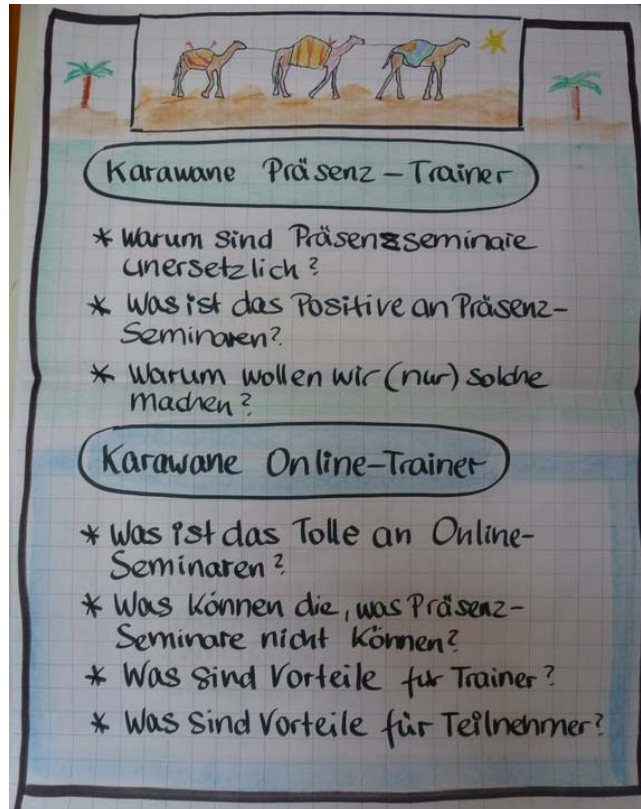 Karawane Präsenz-Trainer
* Warum sind Präsenzseminare
unersetzlich?
* Was ist das Positive an Präsenz-
Seminaren?
* Warum wollen wir (nur) solche
machen?
Karawane Online-Trainer
* Was ist das Tolle an Online-
Seminaren?
* Was können die, was Präsenz-
Seminare nicht können?
* Was sind Vorteile fur Trainer?
* Was sind Vorteile für Teilnehmer?